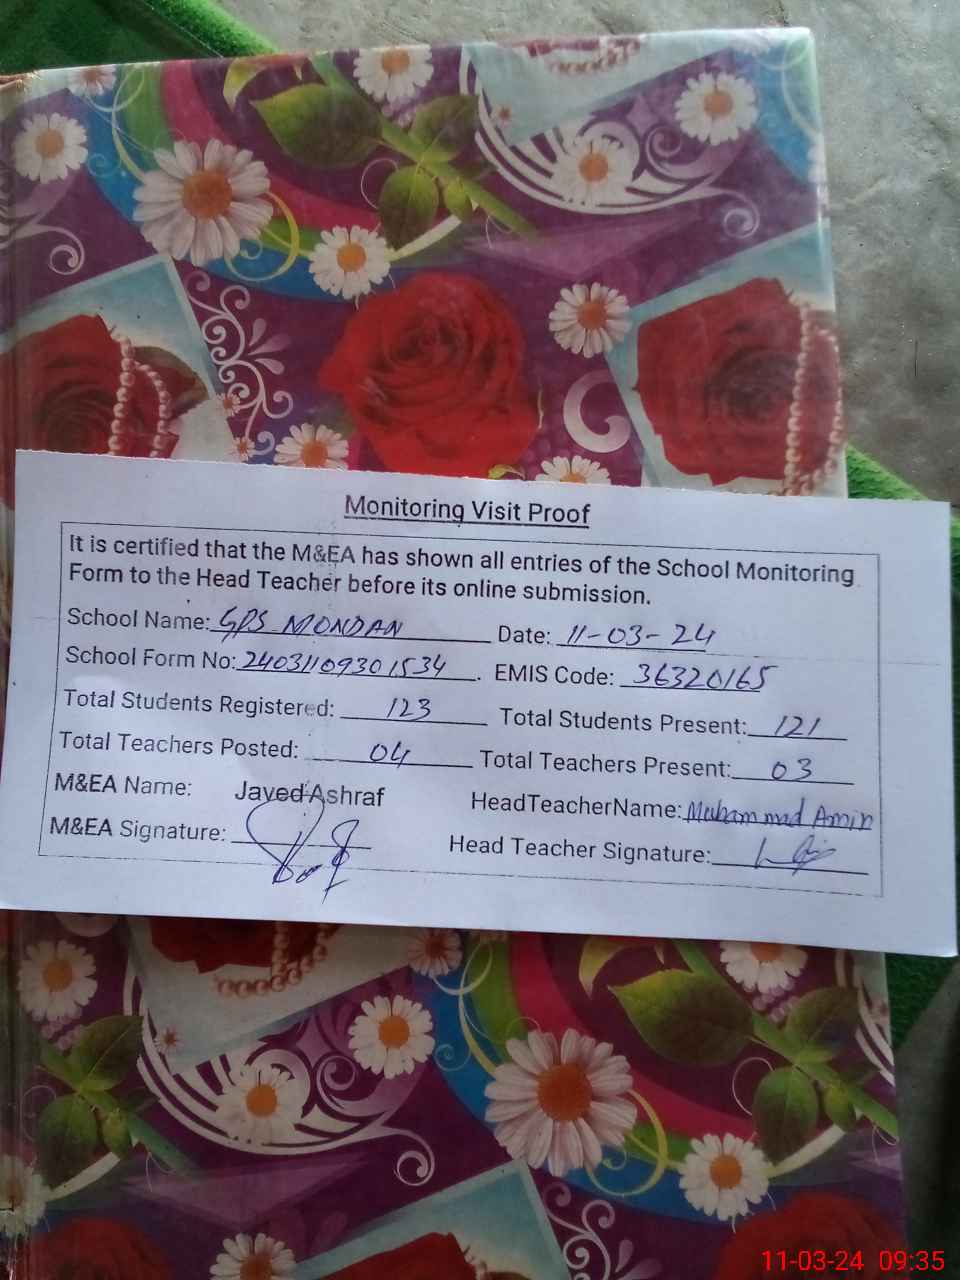 Monitoring Visit Proof
It is certified that the M&EA has shown all entries of the School Monitoring
Form to the Head Teacher before its online submission.
School Name: GPS MONDAN Date: 11-03-24
School Form No: 24031109301534. EMIS Code: 36320165
Total Students Registered: 123 Total Students Present: 121
Total Teachers Posted: 04 Total Teachers Present: 03
M&EA Name: Javed Ashraf HeadTeacherName: Muhammad Amin
M&EA Signature: Head Teacher Signature:
11-03-24 09:35